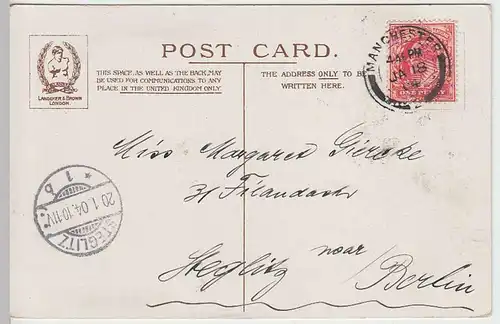 POST CARD.
THIS SPACE, AS WELL AS THE BACK, MAY
BE USED FOR COMMUNICATIONS TO ANY
PLACE IN THE UNITED KINGDOM ONLY
THE ADDRESS ONLY TO BE
WRITTEN HERE.
LANDEKER & BROWN
LONDON
MANCHESTER
PM
JA 18
Miss Margaret Giercke
31
Steglitz near
Berlin
STEGLITZ
* 1 b
20.1.04.10-11V.